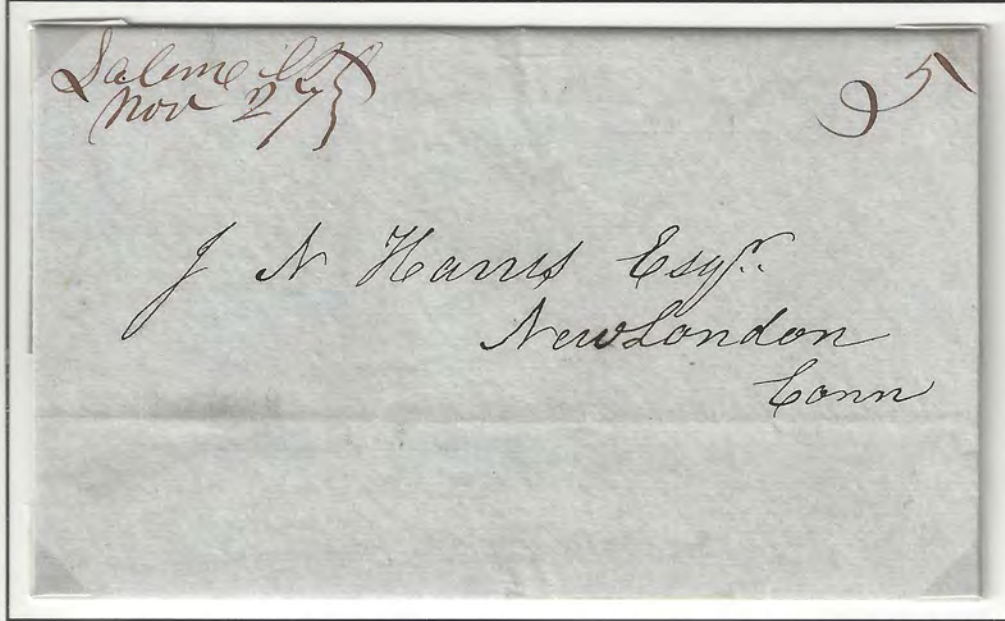 Salem
Nov 27
5
J N Harris Esqr.
New London
Conn